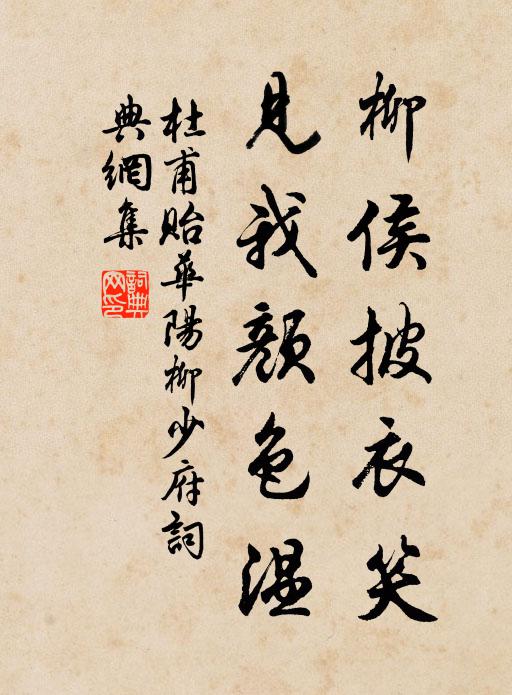 柳侯披衣笑
見我顏色温
杜甫貽華陽柳少府詞
典網集
詞典網印